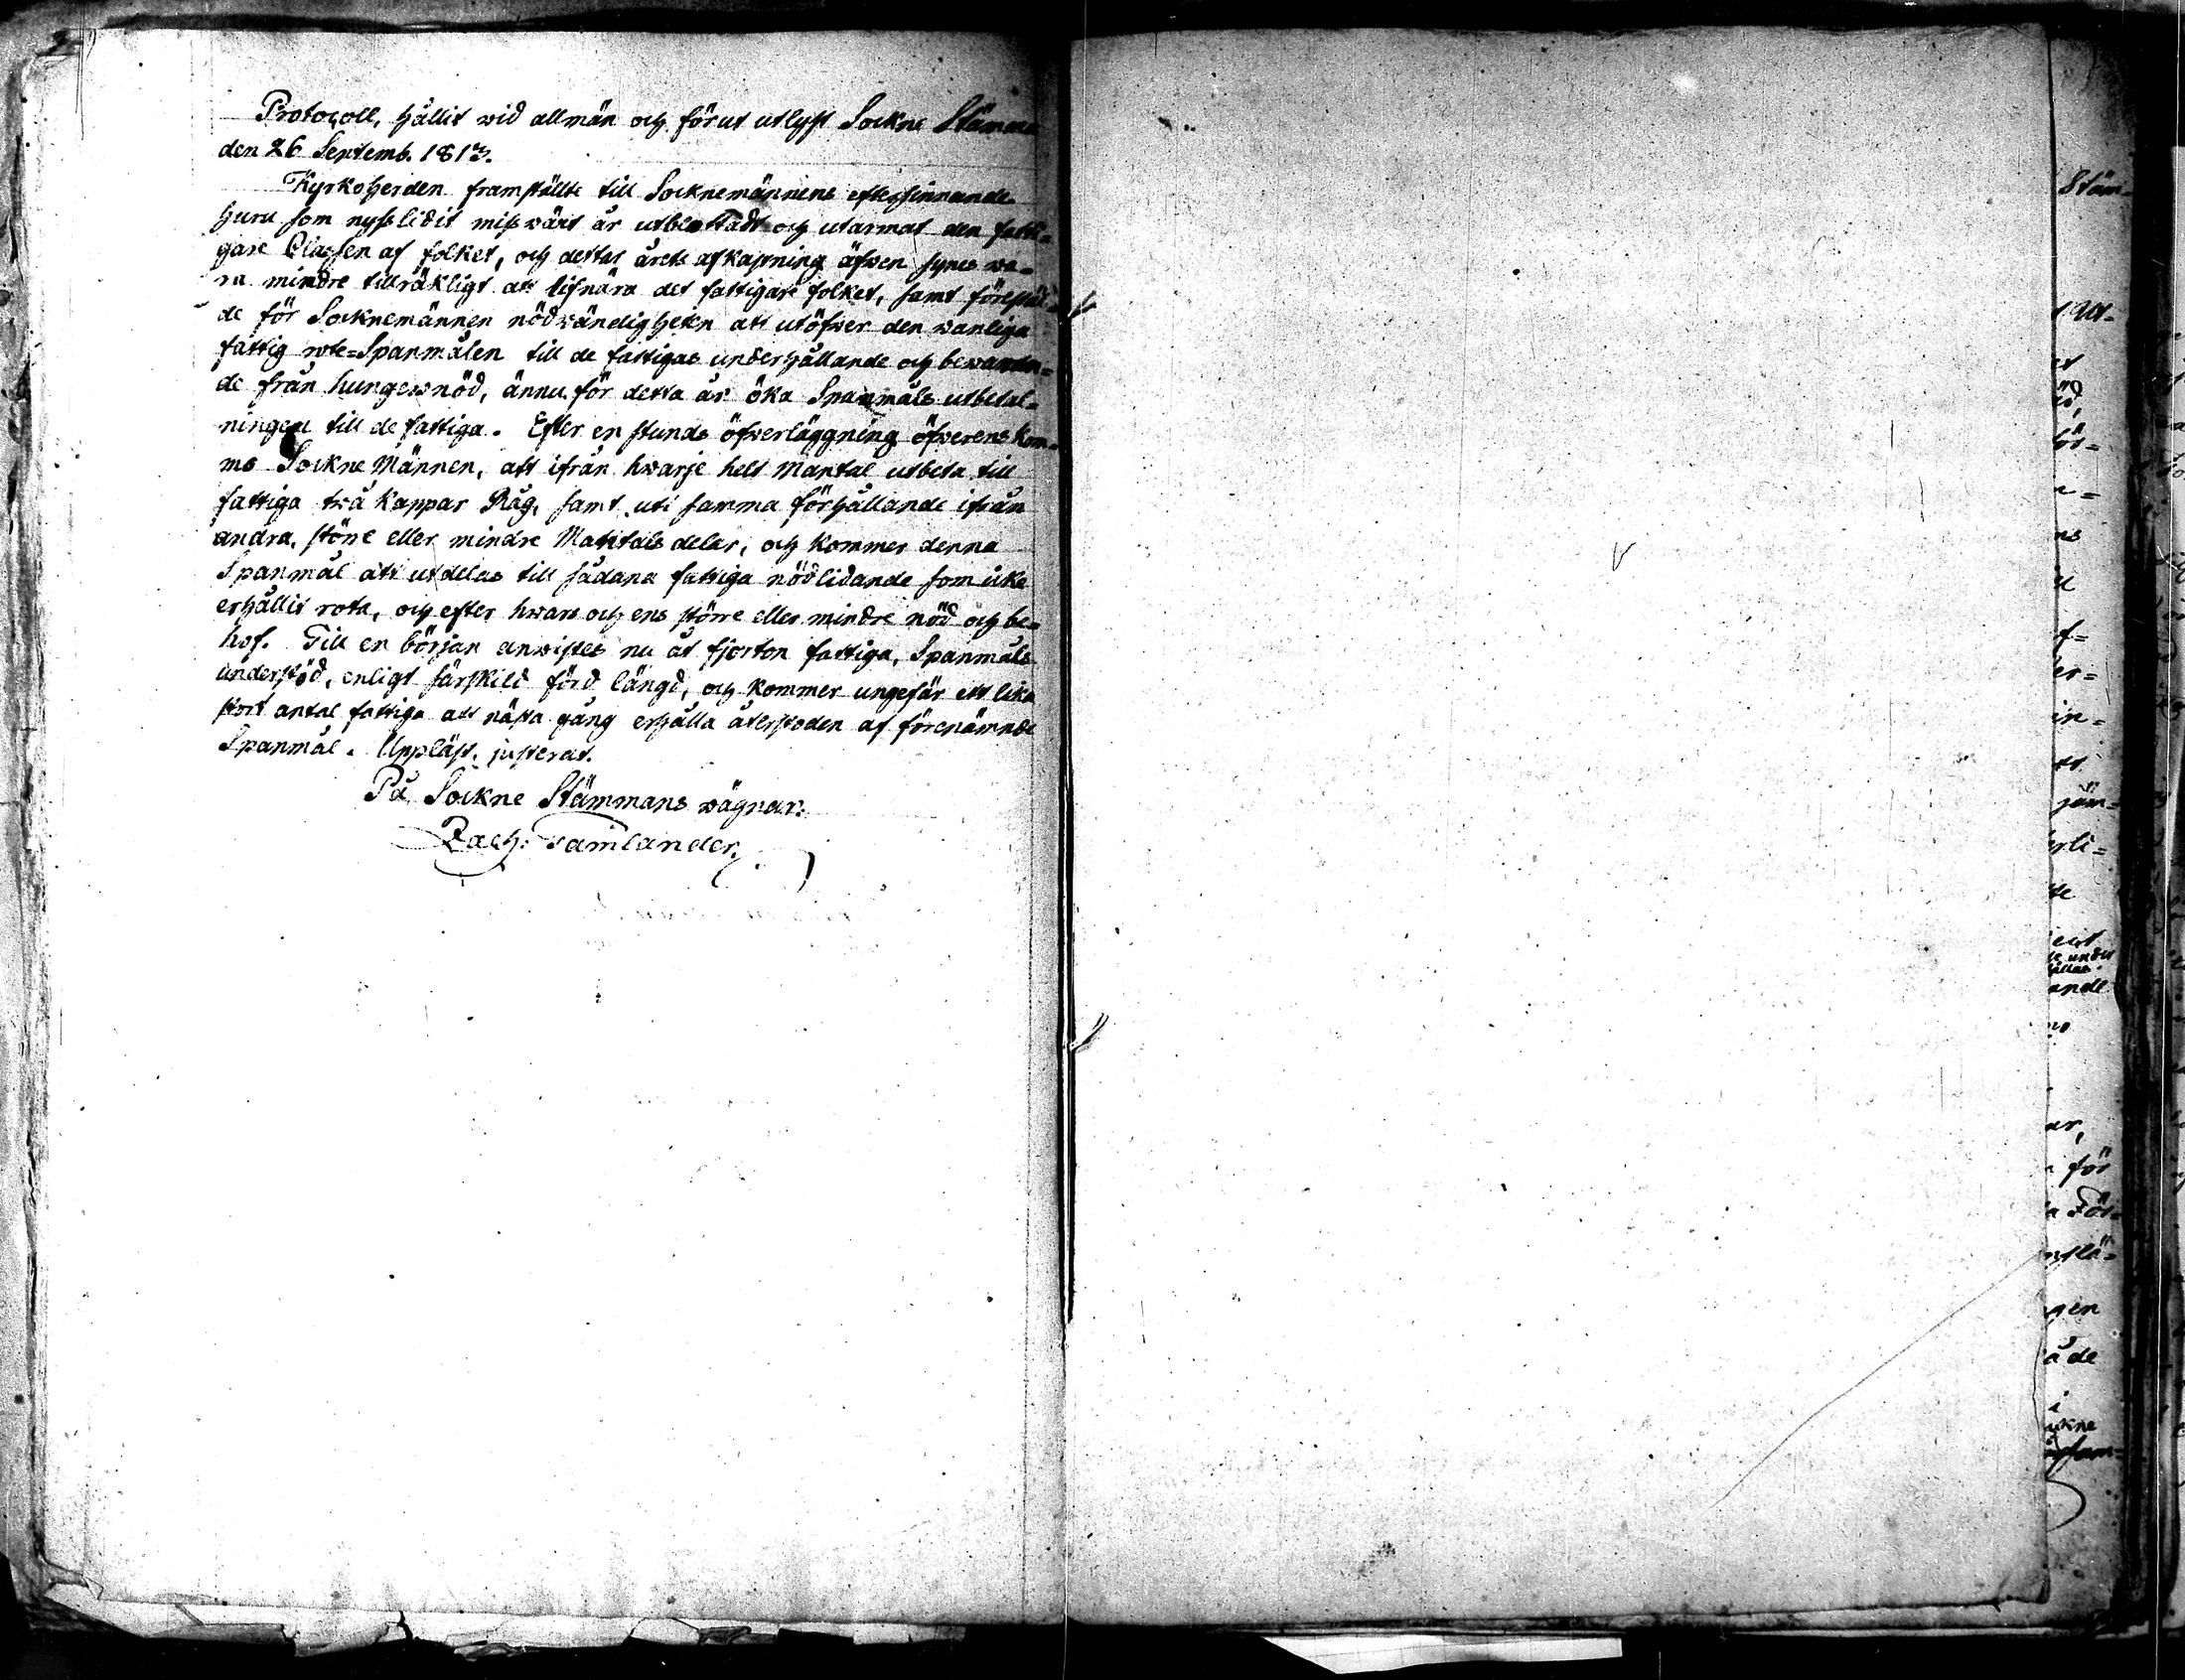 Protocoll, hållit wid allmän och förut utlyst Sockne Stämma
den 26 Septemb. 1813.
Kyrkoherden framställte till Socknemännens eftersinnande
huru som nysslidit missvärt år utblottadt och utarmat den fatti=
gare Classen af folket, och dettas årets afkastning äfwen synes wa=
ra mindre tillräkligt att lifnära det fattigare folket, samt förestäl=
de för Socknemännen nödwändigheten att utöfwer den wanliga
fattig rote=Spanmålen till de fattigas underhållande och bewaran=
de från hungersnöd, ännu för detta år öka Spanmåls utbetal=
ningen till de fattiga. Efter en stunds öfwerläggning öfwerens kom=
mo Sockne Männen, att ifrån hwarje helt Mantal utbeta till
fattiga twå kappar Råg, samt uti samma förhållande ifrån
andra, större eller mindre Mantals delar, och kommer denna
Spanmål att utdelas till sådana fattiga nödlidande som icke
erhållit rota, och efter hwars och ens större eller mindre nöd och be=
hof. Till en början anwistes nu åt fjorton fattiga, Spanmåls
understöd, enligt särskild förd längd, och kommer ungefär ett lika
stort antal fattiga att nästa gång erhålla återstoden af förenämnde
Spanmål. Uppläst, justerat.
På Sockne Stämmans wägnar:
Zach:
Stäm=
ör=
er=
in=
jäm=
erli=
ande
ar,
för
a För=
gen
å de